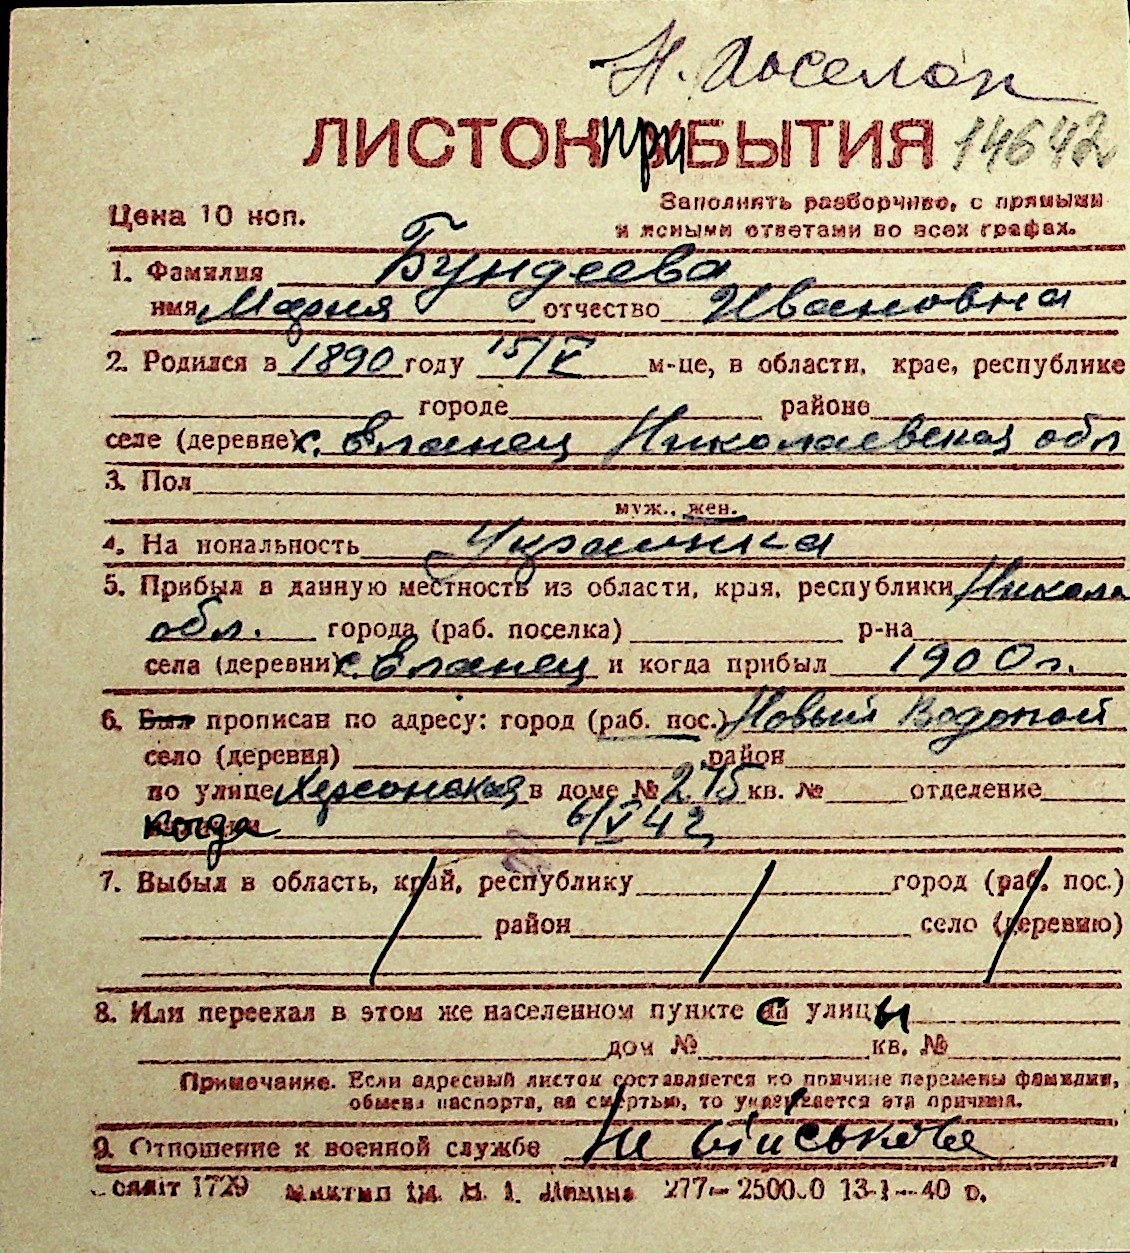 Н. Поселок
ЛИСТОК ПРИБЫТИЯ 14642
Цена 10 коп. Заполнять разборчиво, с прямыми
и ясными ответами во всех графах.
1. Фамилия Бундеева
имя Мария отчество Ивановна
2. Родился в 1890 году 15/V м-це, в области, крае, республике
городе районе
селе (деревне) с. Еланец Николаевская обл
3. Пол
муж., жен.
4. На иональность Украинка
5. Прибыл в данную местность из области, края, республики Никола
обл. города (раб. поселка) р-на
села (деревни) с. Еланец и когда прибыл 1900 г.
6. Был прописан по адресу: город (раб. пос.) Новый Водопой
село (деревня) район
по улице Херсонская в доме № 215 кв. № отделение
когда 6/V 42
7. Выбыл в область, край, республику город (раб. пос.)
район село (деревню)
8. Или переехал в этом же населенном пункте с улицы
дом № кв. №
Примечание. Если адресный листок составляется по причине перемены фамилии,
обмена паспорта, за смертью, то указывается эта причина.
9. Отношение к военной службе Не військова
1729 277— 2500.0 13-1—40 р.